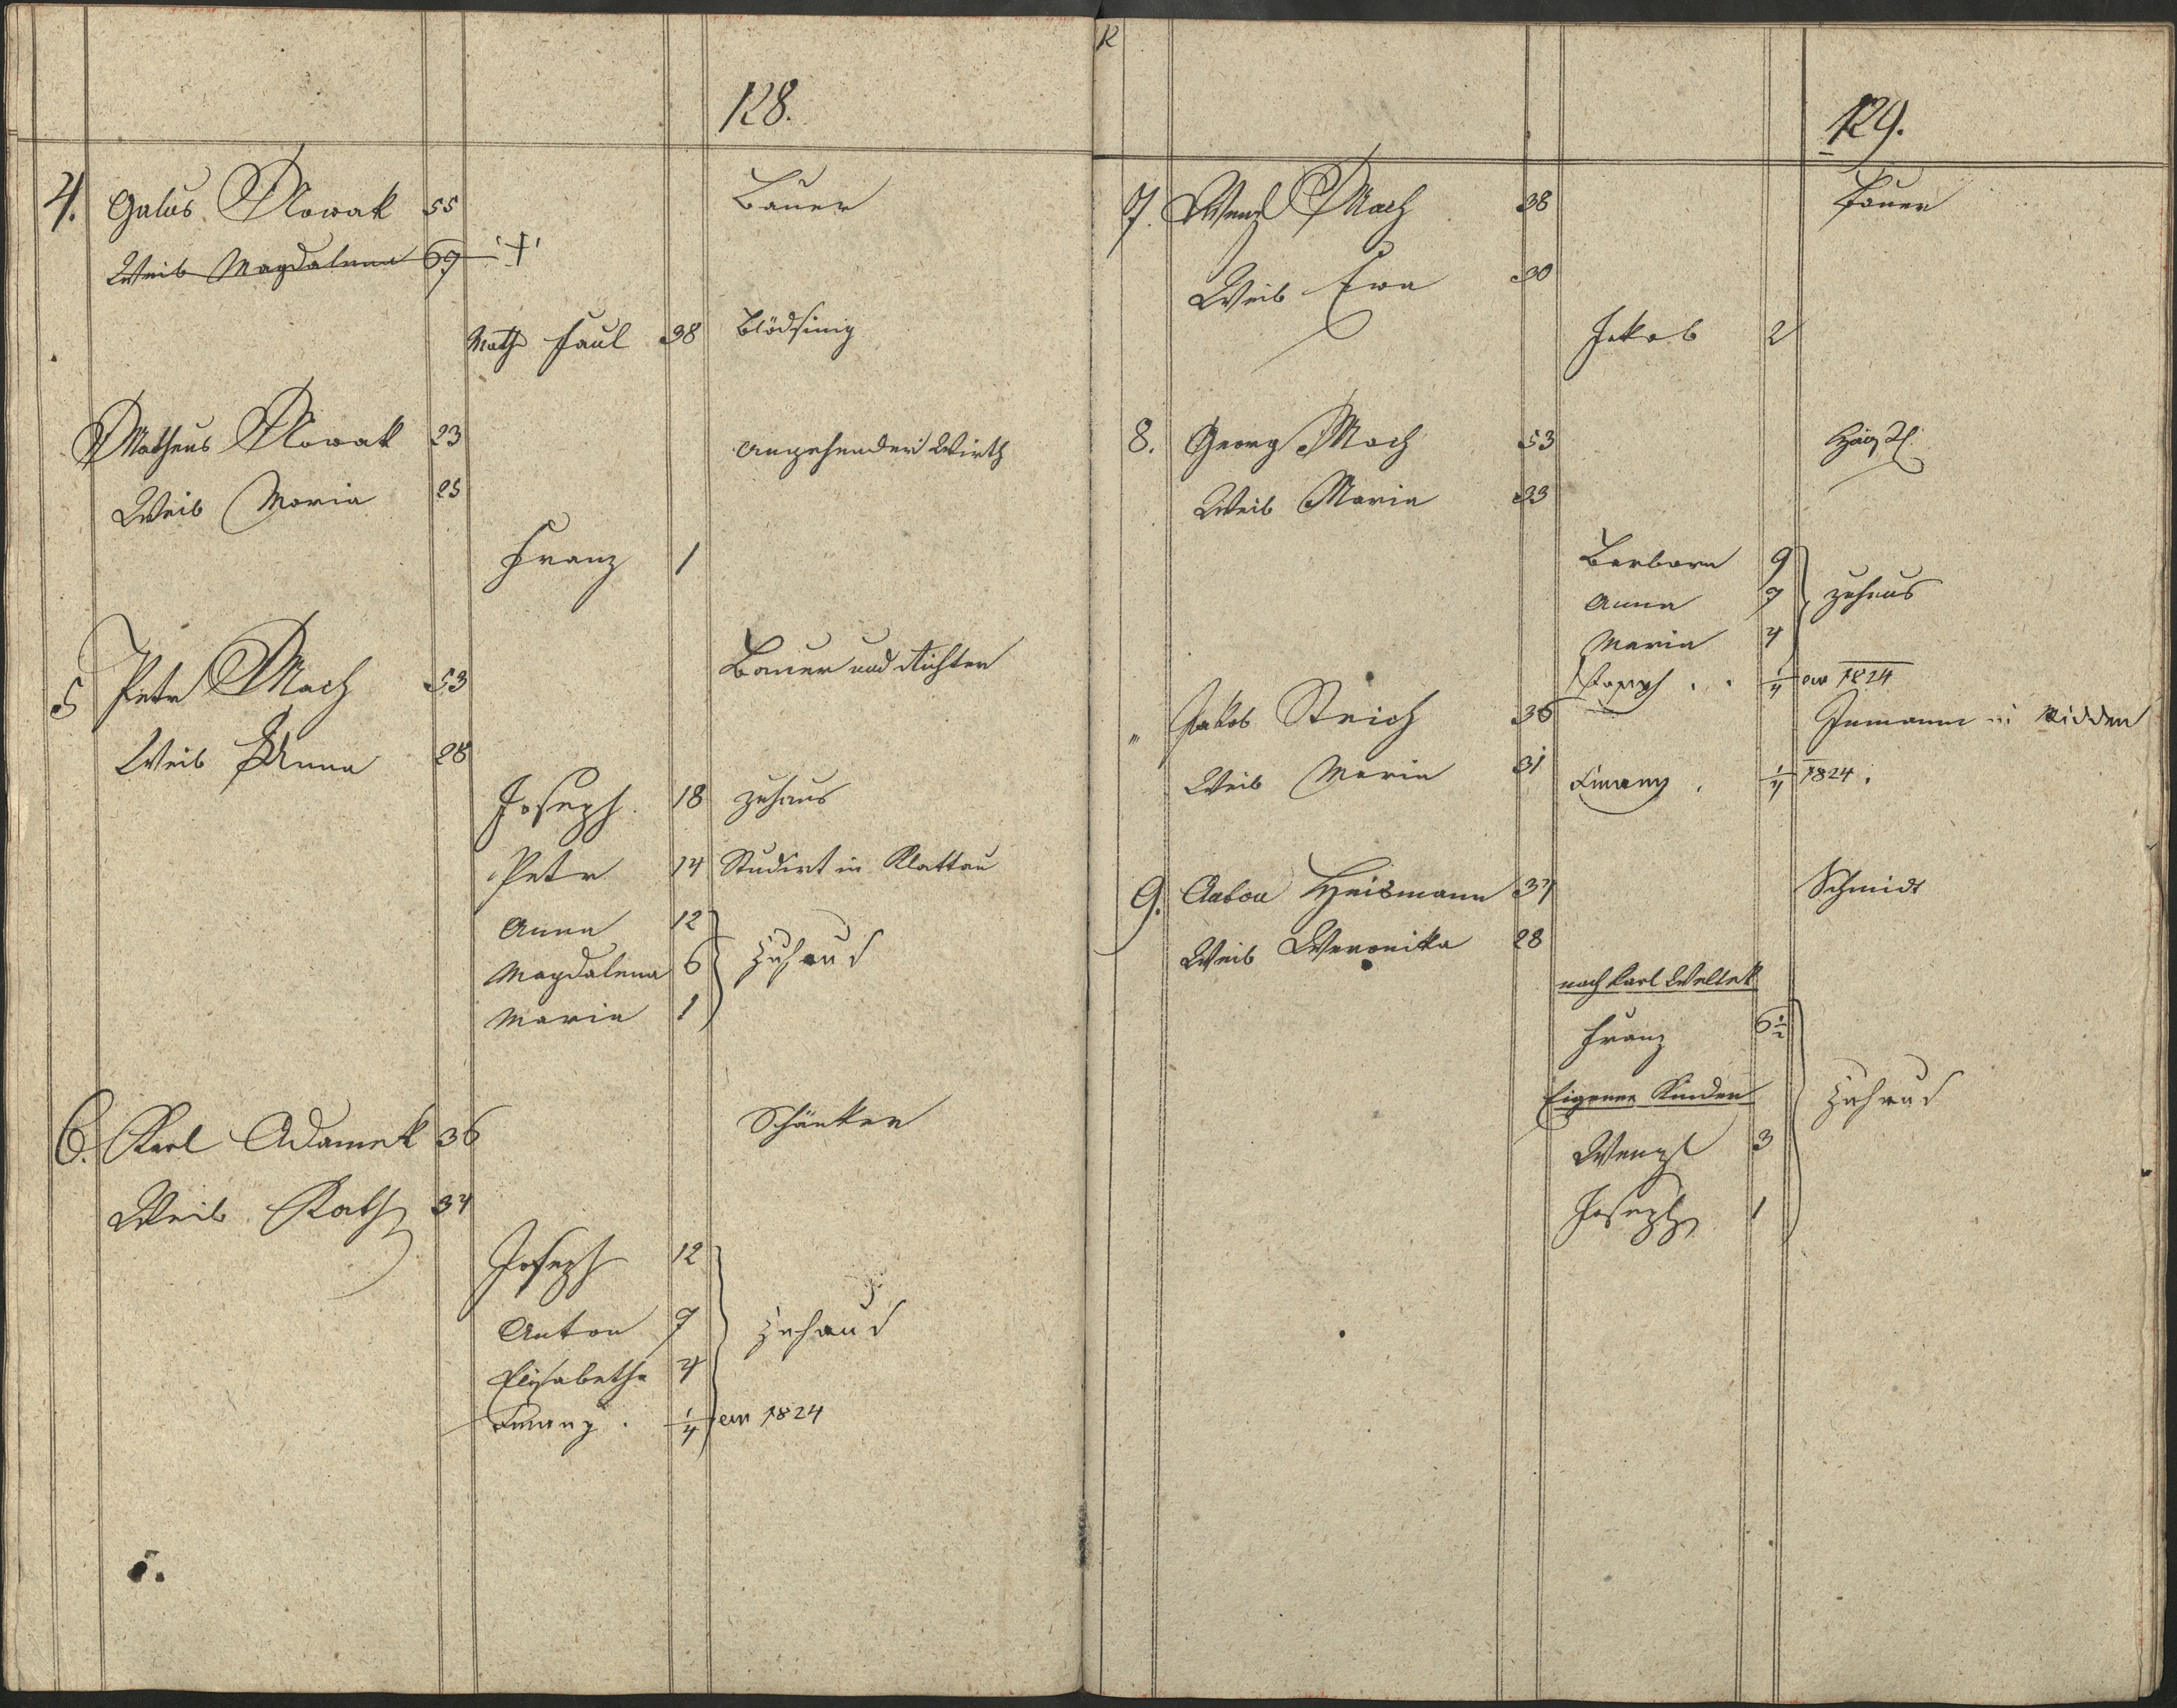 128.
4. Galus Nowak 55 Bauer
Weib Magdalena 69 †
Math Paul 38 Blödsinig
Matheus Nowak 23 Angehender Wirth
Weib Maria 25
Franz 1
5 Petr Mach 53 Bauer und Richter
Weib Anna 28
Joseph 18 zuhaus
Petr 14 Studirt in Klattau
Anna 12
Magdalena 6 zuhaus
Maria 1
6. Karl Adamek 36 Schänker
Weib Kath 34
Joseph 12
Anton 7 zuhaus
Elisabetha 4
Franz . 1/4 1824
129.
7. Wenzl Mach 38 Bauer
Weib Ewa 30
Jakob 2
8. Georg Mach 53
Weib Maria 33
Barbara 9
Anna 7 zuhaus
Maria 4
Joseph . . 1/4 1824
" Jakob Strich 36 Inmann
Weib Maria 31 Franz . 1/4 1824.
9. Heismann 37 Schmidt
Weib Weronika 28
nach Karl Weltek
Franz 6 1/2
Eigene Kinder zuhaus
Wenzl 3
Joseph 1